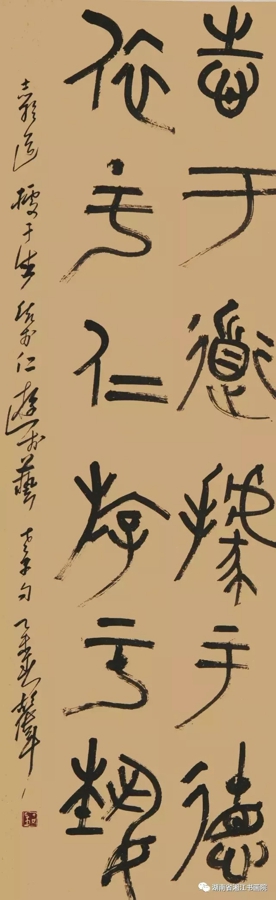 志于道據于德
依于仁游于藝
志於道據于德依於仁游於藝
湖南省湘江书画院